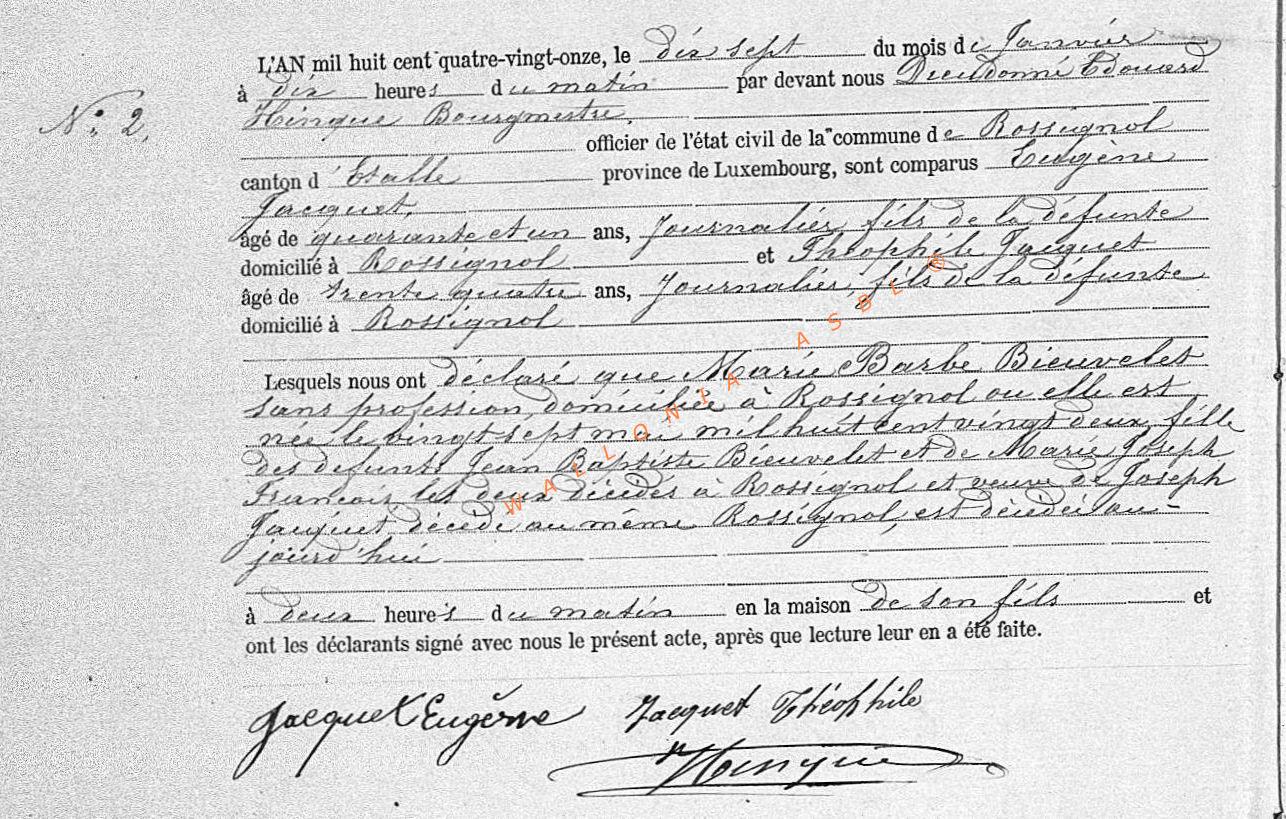 N.º 2.
L'AN mil huit cent quatre-vingt-onze, le dix sept du mois de Janvier
à dix heures du matin par devant nous Dieudonné Edouard
Hinque Bourgmestre,
officier de l'état civil de la commune de Rossignol
canton d'Etalle province de Luxembourg, sont comparus Eugène
Jacquet,
âgé de quarante et un ans, Journalier, fils de la défunte
domicilié à Rossignol et Théophile Jacquet
âgé de trente quatre ans, Journalier, fils de la défunte
domicilié à Rossignol
Lesquels nous ont déclaré que Marie Barbe Bieuvelet
sans profession, domiciliée à Rossignol ou elle est
née le vingt sept mai mil huit cent vingt deux, fille
des defunts Jean Baptiste Bieuvelet et de Marie Joseph
Francois les deux décédés à Rossignol et veuve de Joseph
Jacquet, décédé au même Rossignol, est décédée au-
jourd'hui
à deux heures du matin en la maison de son fils et
ont les déclarants signé avec nous le présent acte, après que lecture leur en a été faite.
Jacquet Eugène Jacquet Théophile
Hinque
WALLONIA ASBL ®